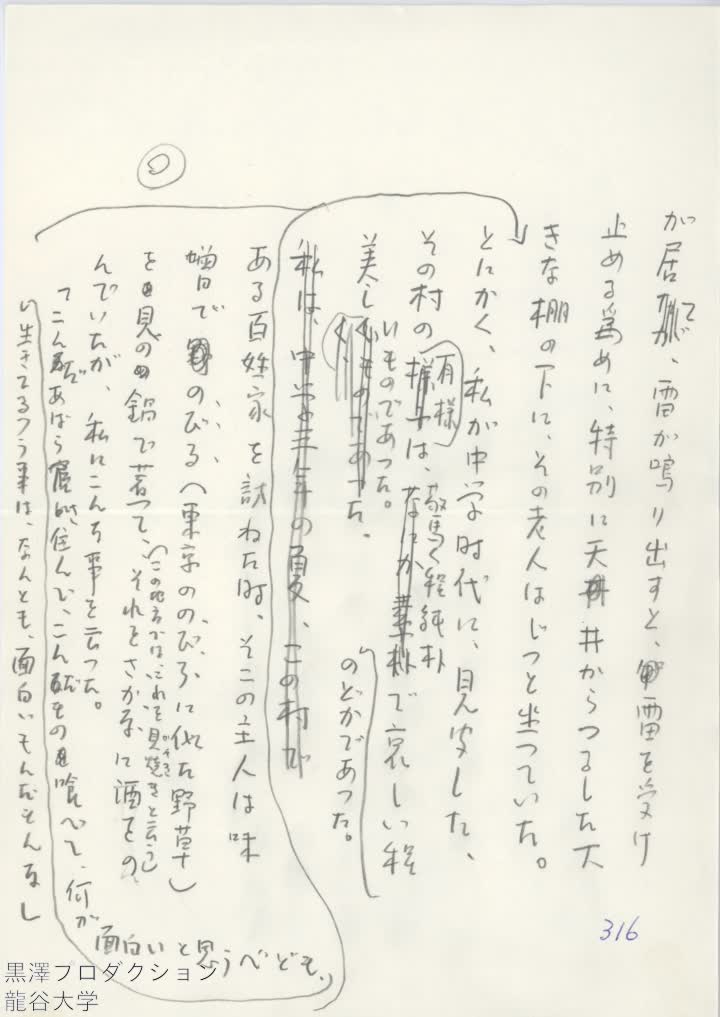 が居て、雷が鳴り出すと、雷を受け
止める為めに、特別に天井からつるした大
きな棚の下に、その老人はじっと坐っていた。
とにかく、私が中学時代に、見聞した、
その村の有様は、驚く程純朴で哀しい程
美しいものであった。
のどかであった。
私は、中学三年の夏、この村で
ある百姓家を訪ねた時、そこの主人は味
噌でのびる(東京ののびるに似た野草)
を貝の鍋で煮て、それをさかなに酒をの
(この地方では、これを貝焼きと云う)
かやき
んでいたが、私にこんな事を云った。
「こんなあばら家に住んで、こんなもの喰べて、何が
面白いと思うべども、
生きてるつう事は、なんとも、面白いもんだもんなし
316
黒澤プロダクション
龍谷大学